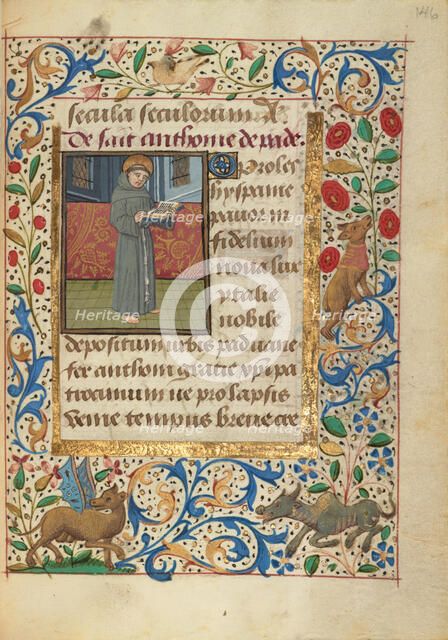 146
secula seculorum A
De sait anthoine de pade.
O Proles
hyspanie
pavor in
fidelium
nova lux
ytalie
nobile
depositum urbis paduane
fer anthoni gracie xpi pa
trocinium ne prolapsis
venie tempus breve cre
Heritage
Heritage
Heritage
Heritage
Heritage
Heritage
Heritage